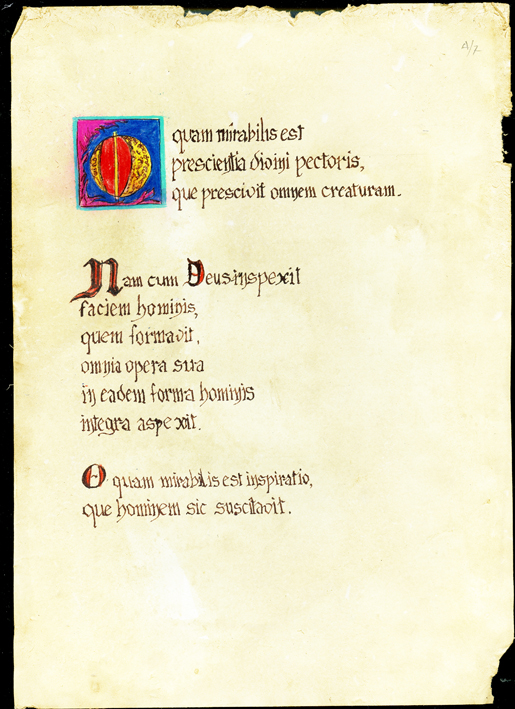 O quam mirabilis est
prescientia divini pectoris,
que prescivit omnem creaturam.
Nam cum Deus inspexit
faciem hominis,
quem formavit,
omnia opera sua
in eadem forma hominis
integra aspexit.
O quam mirabilis est inspiratio,
que hominem sic suscitavit.